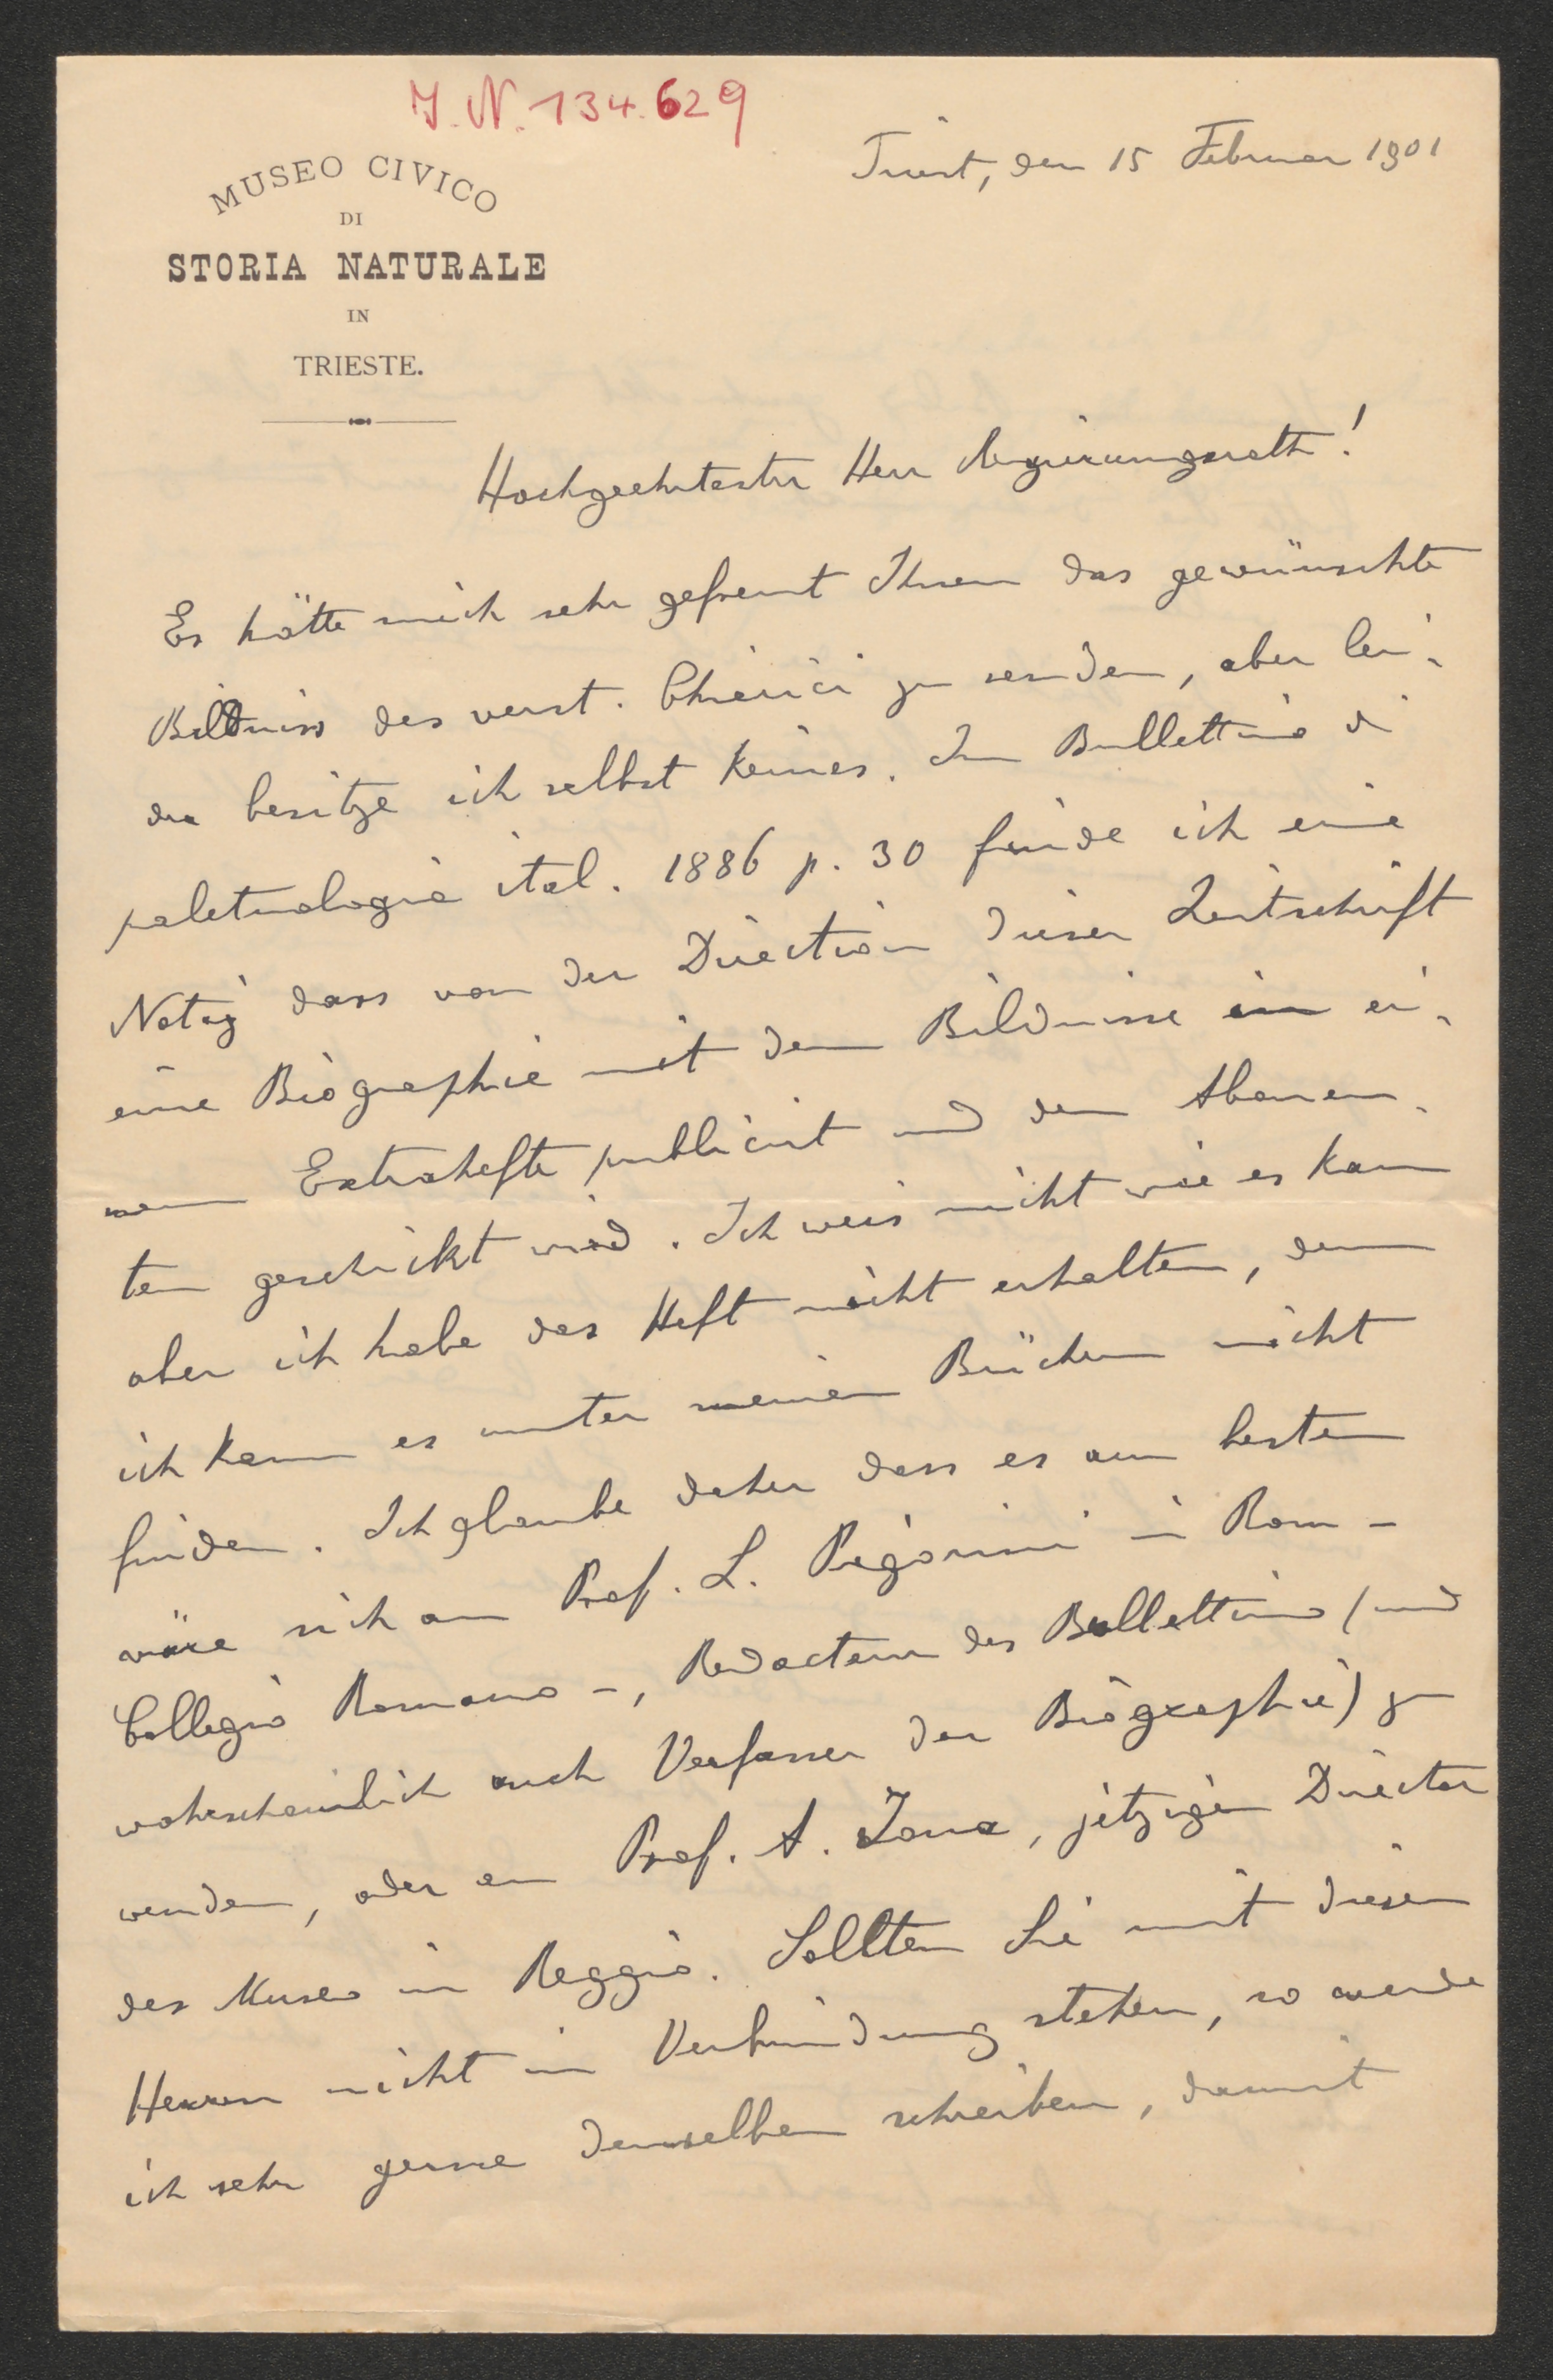 J. N. 134.629
MUSEO CIVICO
DI
STORIA NATURALE
IN
TRIESTE.
Triest, den 15 Februar 1901
Hochgeehrtester Herr Regierungsrath!
Es hätte mich sehr gefreut Ihnen das gewünschte
Bildniss des verst. Chierici zu senden, aber lei-
der besitze ich selbst keines. Im Bullettino di
paletnologia ital. 1886 p. 30 finde ich eine
Notiz dass von der Direction dieser Zeitschrift
eine Biographie mit dem Bildnisse in ei-
nem Extrahefte publicirt und den Abonen-
ten geschickt wird. Ich weis nicht wie es kam
aber ich habe das Heft nicht erhalten, denn
ich kann es unter meinen Büchern nicht
finden. Ich glaube daher dass es am besten
wäre sich an Prof. L. Pigorini in Rom -
Collegio Romano -, Redacteur des Bullettino (und
wahrscheinlich auch Verfasser der Biographie) zu
wenden, oder an Prof. A. Jona, jetzigen Director
des Museo in Reggio. Sollten Sie mit diesen
Herren nicht in Verbindung stehen, so werde
ich sehr gerne denselben schreiben, damit